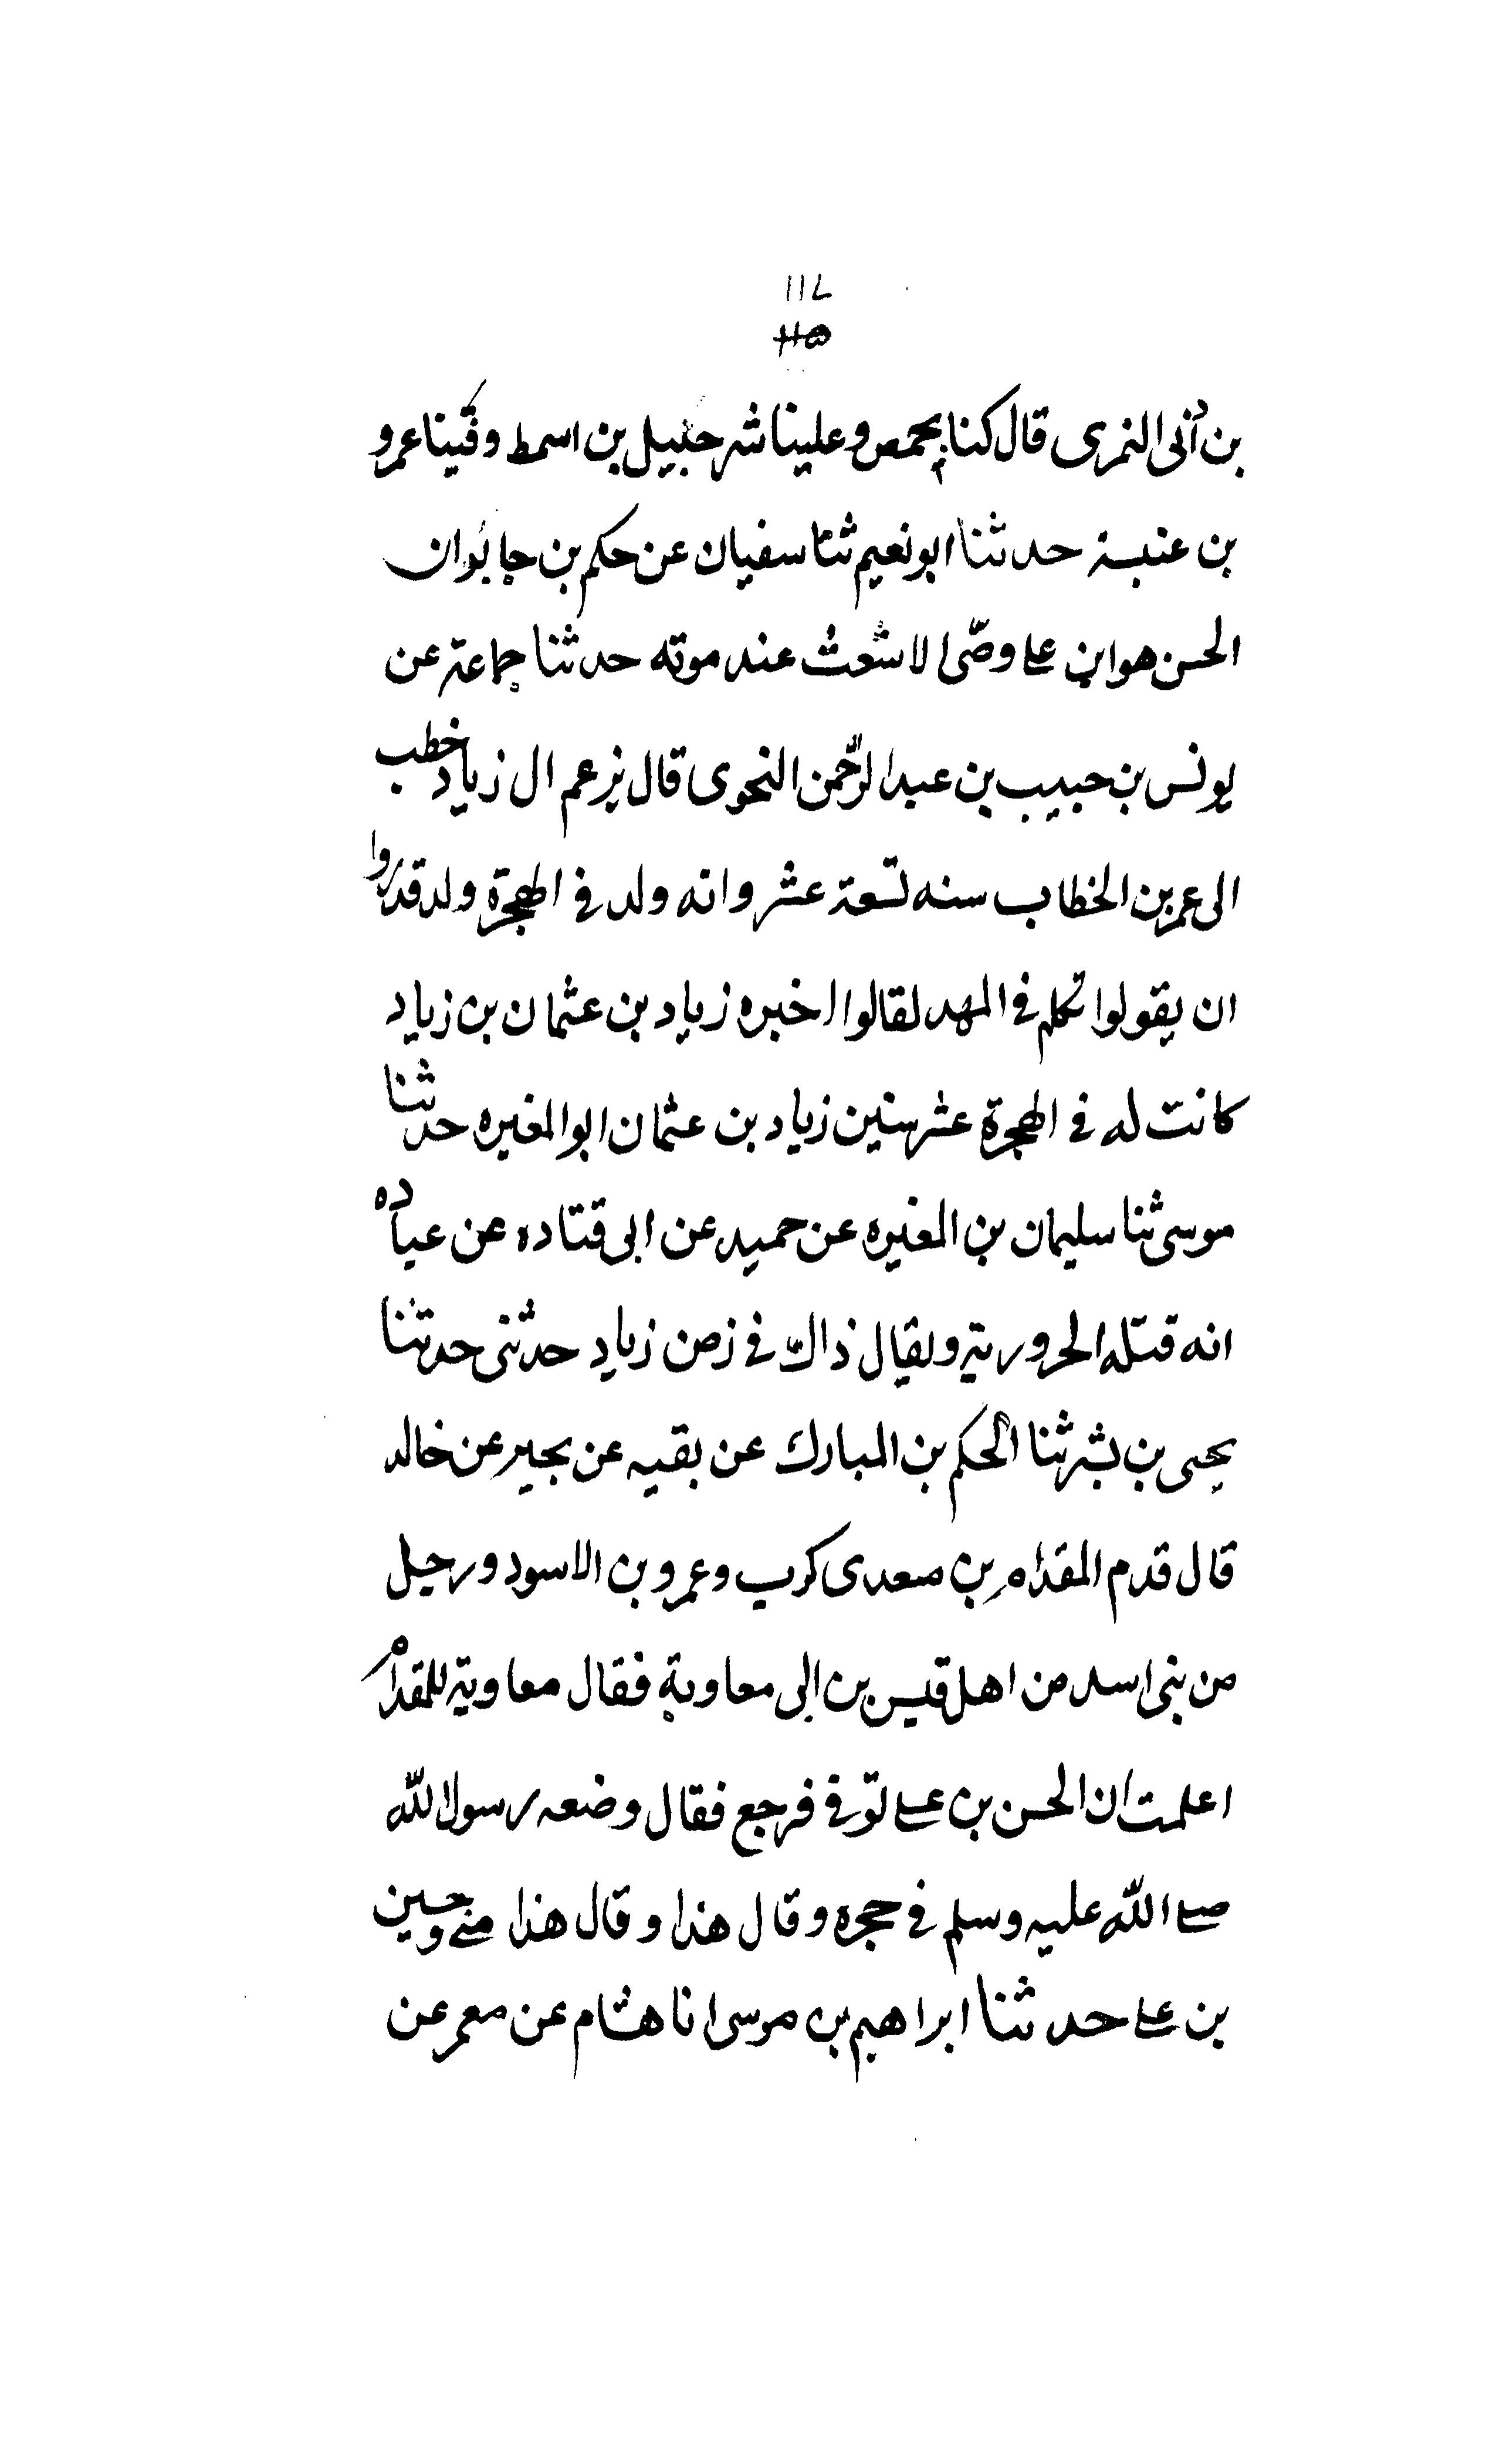 ١١٦
١١٥
بن أنى النمرى قال كنا بحمص وعلينا شرحبيل بن اسمط وفينا عمرو
بن عنبسة حدثنا ابو نعيم ثنا سفيان عن حكم بن جابر ان
الحسن هو ابن على وصّى الاشعث عند موته حدثنا جماعة عن
يونس بن حبيب بن عبد الرّحمن النحوى قال يزعم ال زياد خطب
الى عمر بن الخطاب سنه تسعة عشر وانه ولد فى الهجرة ولد قدروا
ان يقولوا تكلم فى المهد لقالوا اخبره زياد بن عثمان بن زياد
كانت له فى الهجرة عشر سنين زياد بن عثمان ابو المغيره حدثنا
موسى ثنا سليمان بن المغيره عن حميد عن ابى قتاده عن عباده
انه قتله الحرورية ويقال ذاك فى زمن زياد حدثنى حدثنا
يحيى بن بشر ثنا الحكم بن المبارك عن بقيه عن بجير عن خالد
قال قدم المقدام بن معدى كرب وعمرو بن الاسود ورجل
من بنى اسد من اهل قيس بن الى معاوية فقال معاوية للمقدام
اعلمت ان الحسن بن على توفى فرجع فقال وضعه رسول الله
صلى الله عليه وسلم فى حجره وقال هذا وقال هذا منى وحسين
بن على حدثنا ابراهيم بن موسى انا هشام عن معمر عن